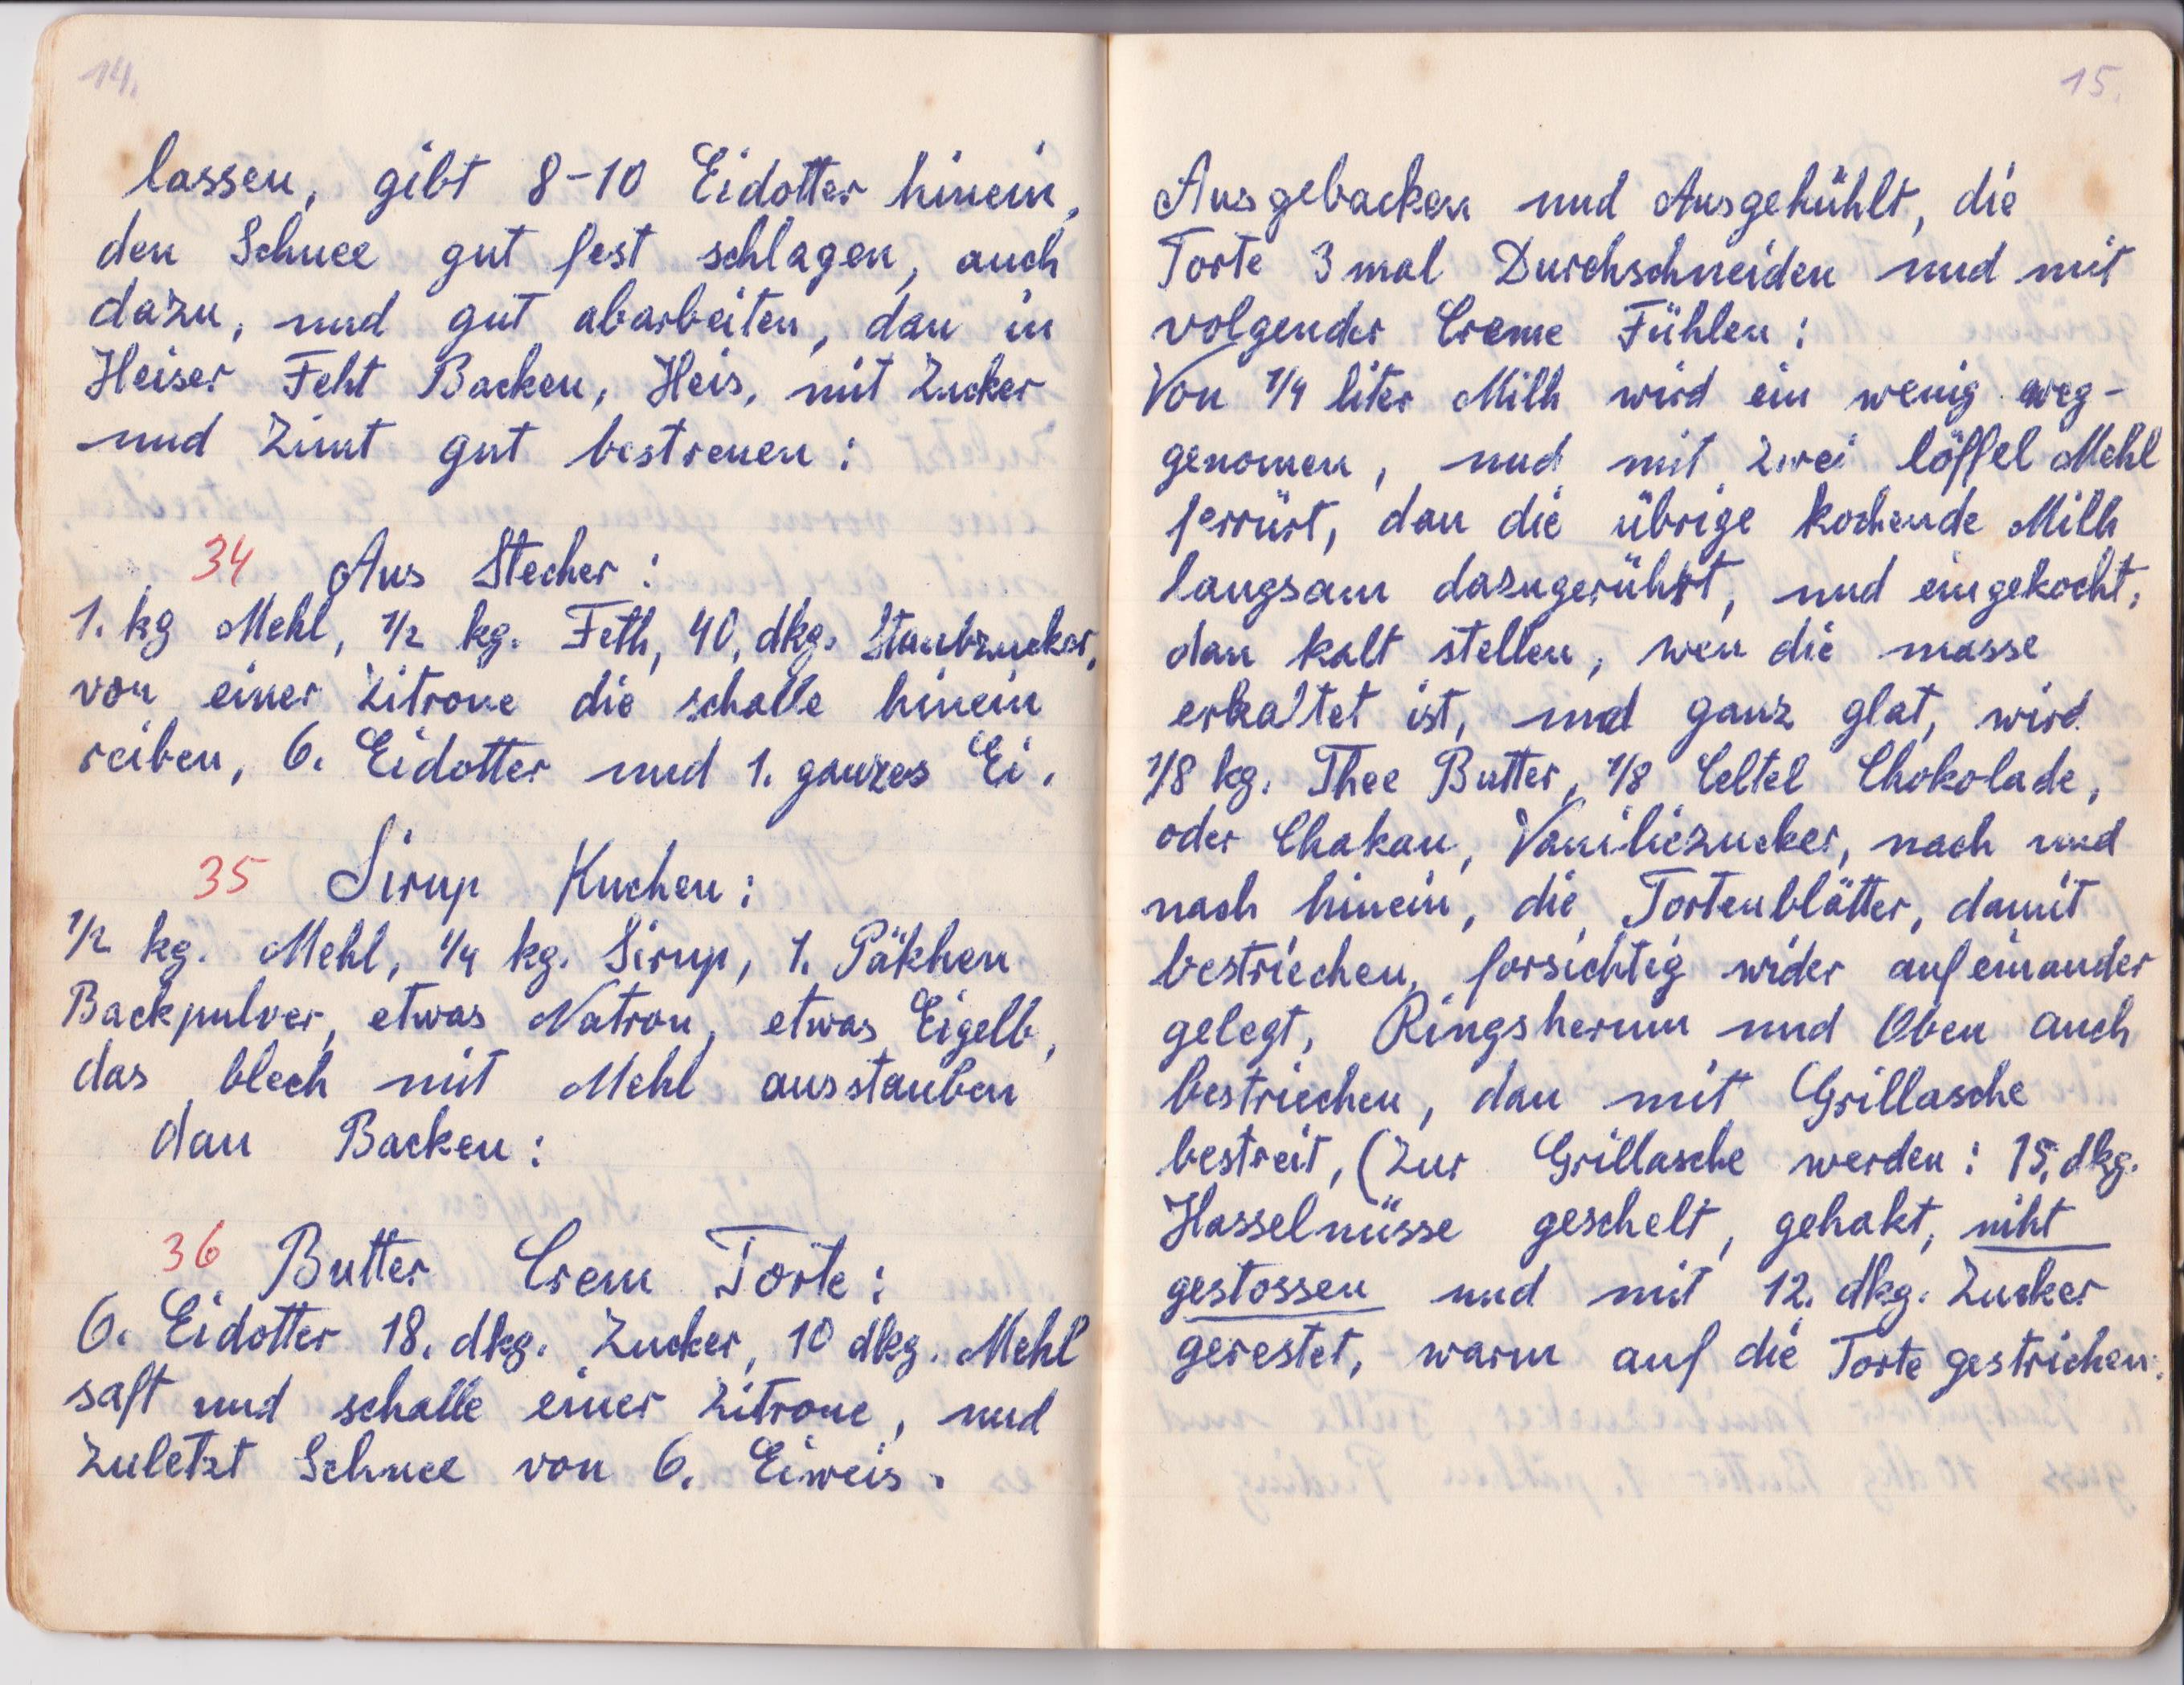 14.
lassen, gibt 8-10 Eidotter hinein,
den Schnee gut fest schlagen, auch
dazu, und gut abarbeiten, dan in
Heiser Feht Backen, Heis, mit Zucker
und Zimt gut bestreuen:
34 Aus Stecher:
1. kg Mehl, 1/2 kg. Feth, 40, dkg. Staubzucker,
von einer Zitrone die schalle hinein
reiben, 6. Eidotter und 1. ganzes Ei.
35 Sirup Kuchen:
1/2 kg. Mehl, 1/4 kg. Sirup, 1. Päkhen
Backpulver, etwas Natron, etwas Eigelb,
das blech mit Mehl ausstauben
dan Backen:
36 Butter Crem Torte:
6. Eidotter 18. dkg. Zucker, 10 dkg. Mehl
saft und schalle einer Zitrone, und
Zuletzt Schnee von 6. Eiweis.
15.
Ausgebacken und Ausgekühlt, die
Torte 3 mal Durchschneiden und mit
volgender Creme Fühlen:
Von 1/4 liter Milh wird ein wenig weg-
genomen, und mit zwei löffel Mehl
ferrürt, dan die übrige kochende Milh
langsam dazugerührt, und eingekocht,
dan kalt stellen, wen die masse
erkaltet ist, und ganz glat, wird
1/8 kg. Thee Butter, 1/8 Celtel Chokolade,
oder Chakau, Vaniliezucker, nach und
nach hinein, die Tortenblätter, damit
bestriechen, forsichtig wider aufeinander
gelegt, Ringsherum und Oben auch
bestriechen, dan mit Grillasche
bestreit, (Zur Grillasche werden: 15, dkg.
Hasselnüsse geschelt, gehakt, niht
gestossen und mit 12. dkg. Zucker
gerestet, warm auf die Torte gestrichen.